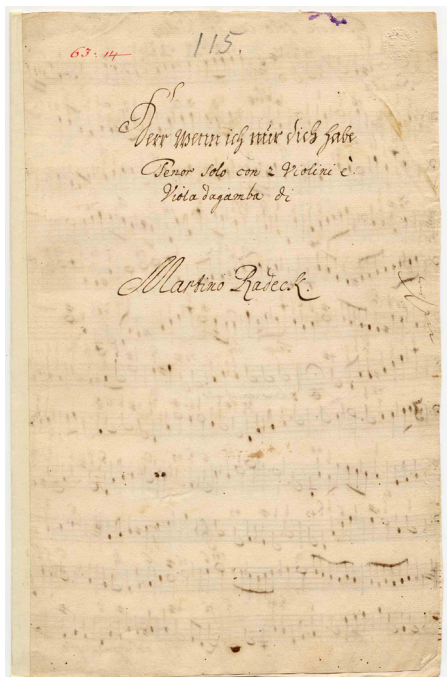 63:14
115.
Herr wenn ich nur dich habe
Tenor solo con 2 Violini è
Viola dagamba di
Martino Radeck.